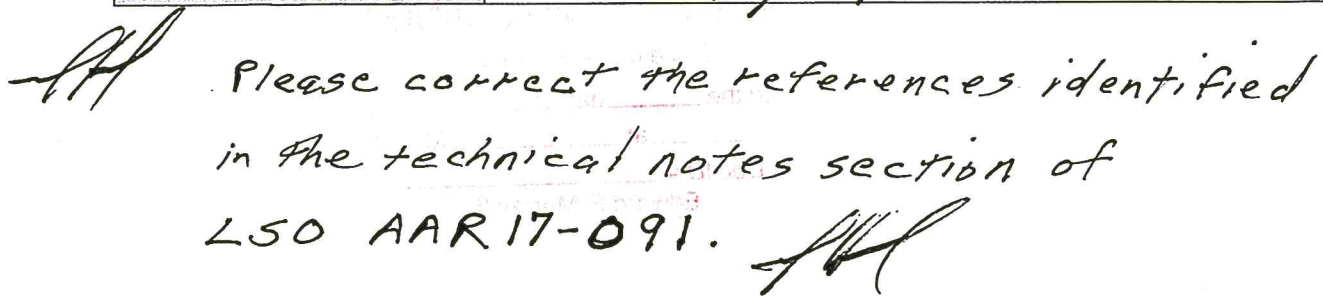 Please correct the references identified
in the technical notes section of
LSO AAR17-091.